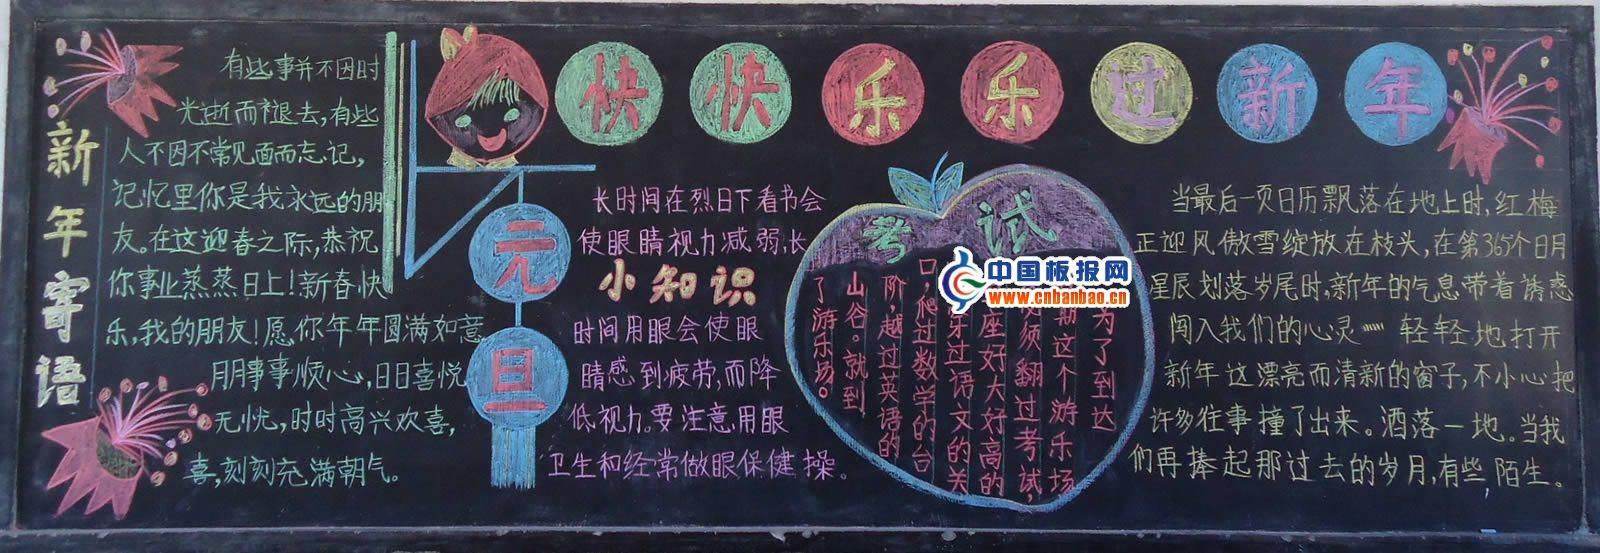 快快乐乐过新年
新年寄语
有些事并不因时
光逝而褪去,有些
人不因不常见面而忘记,
记忆里你是我永远的朋
友。在这迎春之际,恭祝
你事业蒸蒸日上!新春快
乐,我的朋友!愿你年年圆满如意
月月事事顺心,日日喜悦
无忧,时时高兴欢喜,
喜,刻刻充满朝气。
元旦
长时间在烈日下看书会
使眼睛视力减弱,长
小知识
时间用眼会使眼
睛感到疲劳,而降
低视力。要注意用眼
卫生和经常做眼保健操。
考试
为了到达
期这个游乐场,
须翻过考试,
座好大好高的
牙过语文的关
口,爬过数学的台
阶,越过英语的
山谷。就到
了游乐场。
中国板报网
www.cnbanbao.cn
当最后一页日历飘落在地上时,红梅
正迎风傲雪绽放在枝头,在第365个日月
星辰划落岁尾时,新年的气息带着诱惑
闯入我们的心灵……轻轻地打开
新年这漂亮而清新的窗子,不小心把
许多往事撞了出来。洒落一地。当我
们再捧起那过去的岁月,有些陌生。